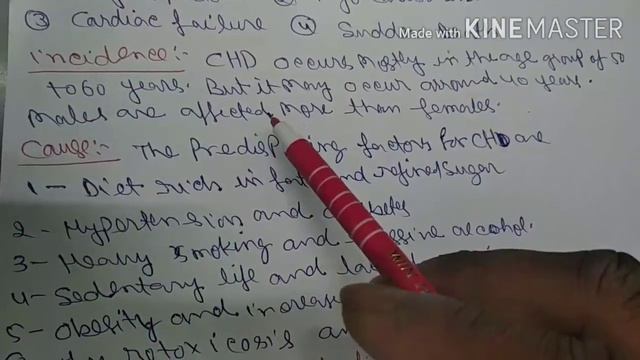 ③ Cardiac failure ④ Sudden
Made with KINEMASTER
incidence:- CHD occurs mostly in the age group of 50
to 60 years. But it may occur around 40 years.
Males are affected more than females.
Cause:- The Predisp ing factors for CHD are
1 - Diet rich in fat and refined sugar
2 - Hypertension and
3 - Heavy smoking and alcohol.
4 - Sedentary life and
5 - Obesity and increase